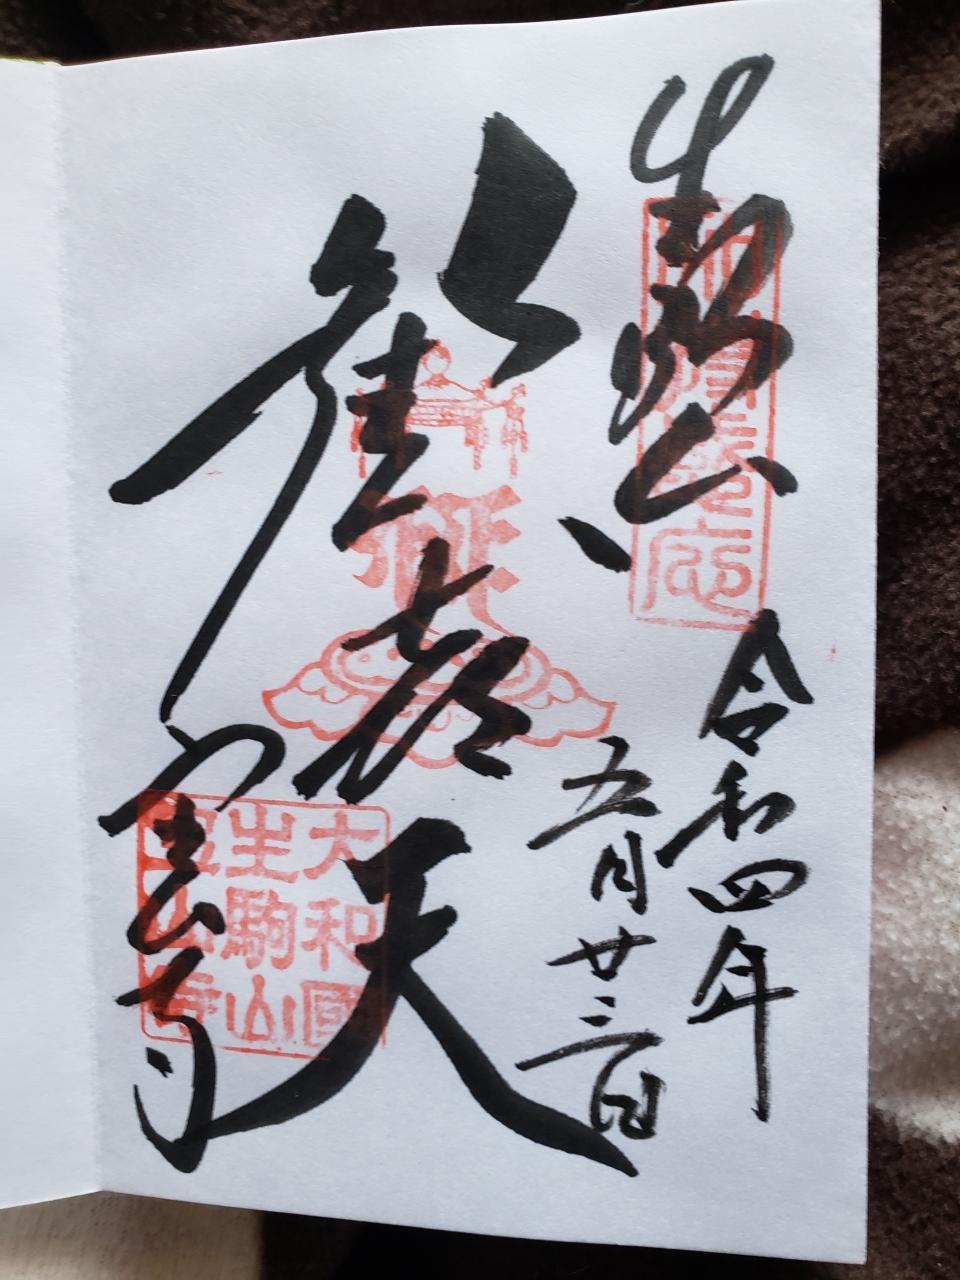 生駒山
令和四年
五月廿三日
歓喜天
宝山寺
大和國
生駒山
寶山寺